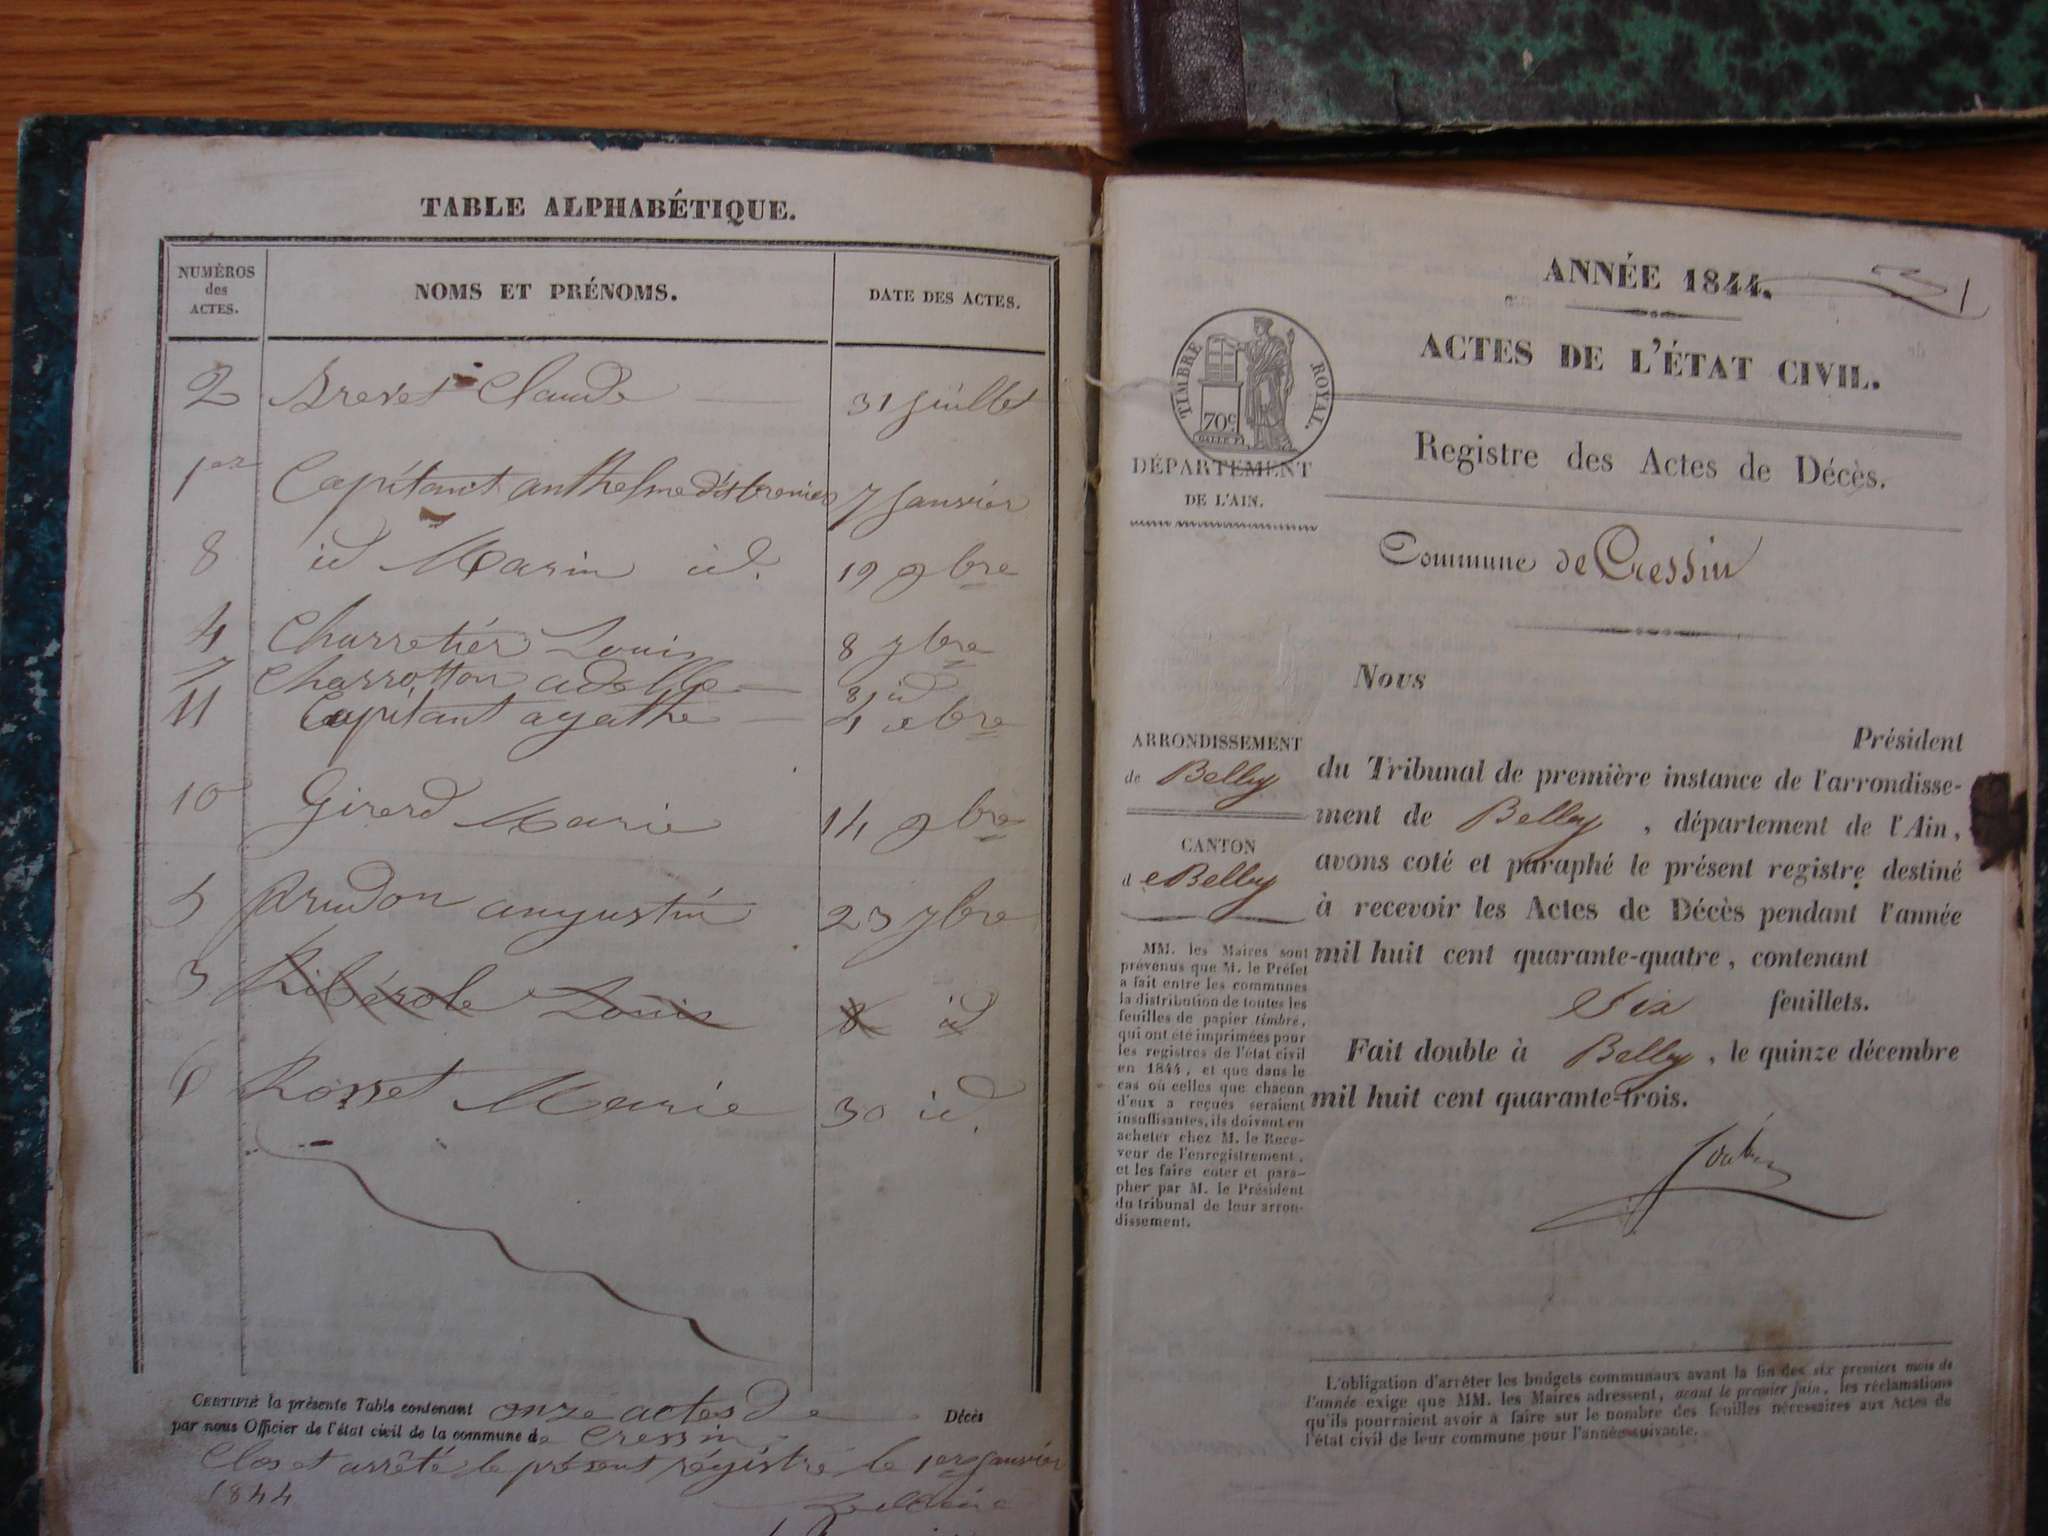 TABLE ALPHABÉTIQUE.
NUMÉROS des ACTES. NOMS ET PRÉNOMS. DATE DES ACTES.
2 Brevet Claude 31 juillet
1er Capitant anthelme dit 7 janvier
8 id Marin id. 19 9bre
4 Charretier Louis 8 7bre
7 Charrotton adelle 81 id
11 Capitant agathe 4 xbre
10 Girerd Marie 14 9bre
5 prudon augustin 23 7bre
3 Ribérole Louis 8 id
6 Rosset Marie 30 id.
CERTIFIÉ la présente Table contenant onze actes de Décès
par nous Officier de l'état civil de la commune de Cressin
Clos et arrêté le présent régistre le 1er janvier
1844
ANNÉE 1844. 1
ACTES DE L'ÉTAT CIVIL.
TIMBRE ROYAL.
70c
Registre des Actes de Décès.
DÉPARTEMENT
DE L'AIN.
Commune de Cressin
Nous
Président
ARRONDISSEMENT
de Belley
CANTON
de Belley
du Tribunal de première instance de l'arrondisse-
ment de Belley, département de l'Ain,
avons coté et paraphé le présent registre destiné
à recevoir les Actes de Décès pendant l'année
mil huit cent quarante-quatre, contenant
Six feuillets.
Fait double à Belley, le quinze décembre
mil huit cent quarante-trois.
MM. les Maires sont
prévenus que M. le Préfet
a fait entre les communes
la distribution de toutes les
feuilles de papier timbré,
qui ont été imprimées pour
les registres de l'état civil
en 1844, et que dans le
cas où celles que chacun
d'eux a reçues seraient
insuffisantes, ils doivent en
acheter chez M. le Rece-
veur de l'enregistrement,
et les faire coter et para-
pher par M. le Président
du tribunal de leur arron-
dissement.
L'obligation d'arrêter les budgets communaux avant la fin des six premiers mois de
l'année exige que MM. les Maires adressent, avant le premier juin, les réclamations
qu'ils pourraient avoir à faire sur le nombre des feuilles nécessaires aux Actes de
l'état civil de leur commune pour l'année suivante.